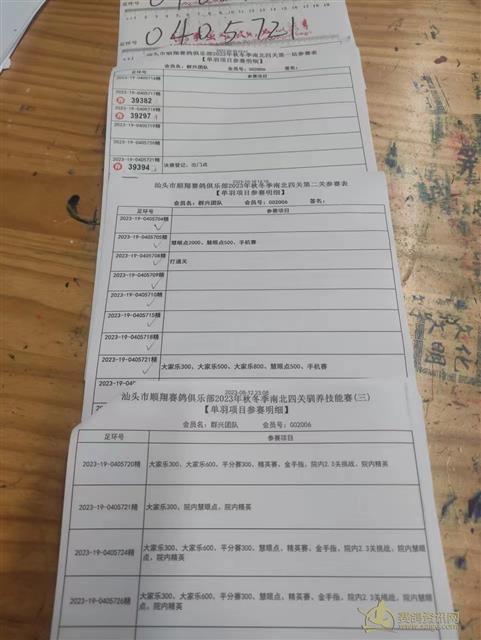 足环号
0405721
汕头市顺翔赛鸽俱乐部2023年秋冬季南北四关第一站参赛表
【单羽项目参赛明细】
会员名：群兴团队 会员号：G02006 签名：
足环号 参赛项目
2023-19-0405717雨
39382
39297
2023-19-0405721
39394 决赛登记，出门点
汕头市顺翔赛鸽俱乐部2023年秋冬季南北四关第二关参赛表
【单羽项目参赛明细】
会员名：群兴团队 会员号：G02006 签名：
足环号 参赛项目
2023-19-0405704精
2023-19-0405705精 慧眼点2000、慧眼点500、手机赛
2023-19-0405708精 打通关
2023-19-0405709精
2023-19-0405710精
2023-19-0405715精
2023-19-0405718精
2023-19-0405721精 大家乐300、大家乐500、大家乐800、慧眼点500、手机赛
2023-08-12 23:08
汕头市顺翔赛鸽俱乐部2023年秋冬季南北四关驯养技能赛(三)
【单羽项目参赛明细】
会员名：群兴团队 会员号：G02006
足环号 参赛项目
2023-19-0405720精 大家乐300、大家乐600、平分赛300、精英赛、金手指、院内2.3关挑战、院内精英
2023-19-0405721精 大家乐300、院内慧眼点、院内精英
2023-19-0405724精 大家乐300、大家乐600、平分赛300、慧眼点、精英赛、金手指、院内2.3关挑战、院内慧眼
点、院内精英
2023-19-0405726精 大家乐300、大家乐600、平分赛300、慧眼点、精英赛、金手指、院内2.3关挑战、院内慧眼
点、院内精英
文明
赛鸽资讯网